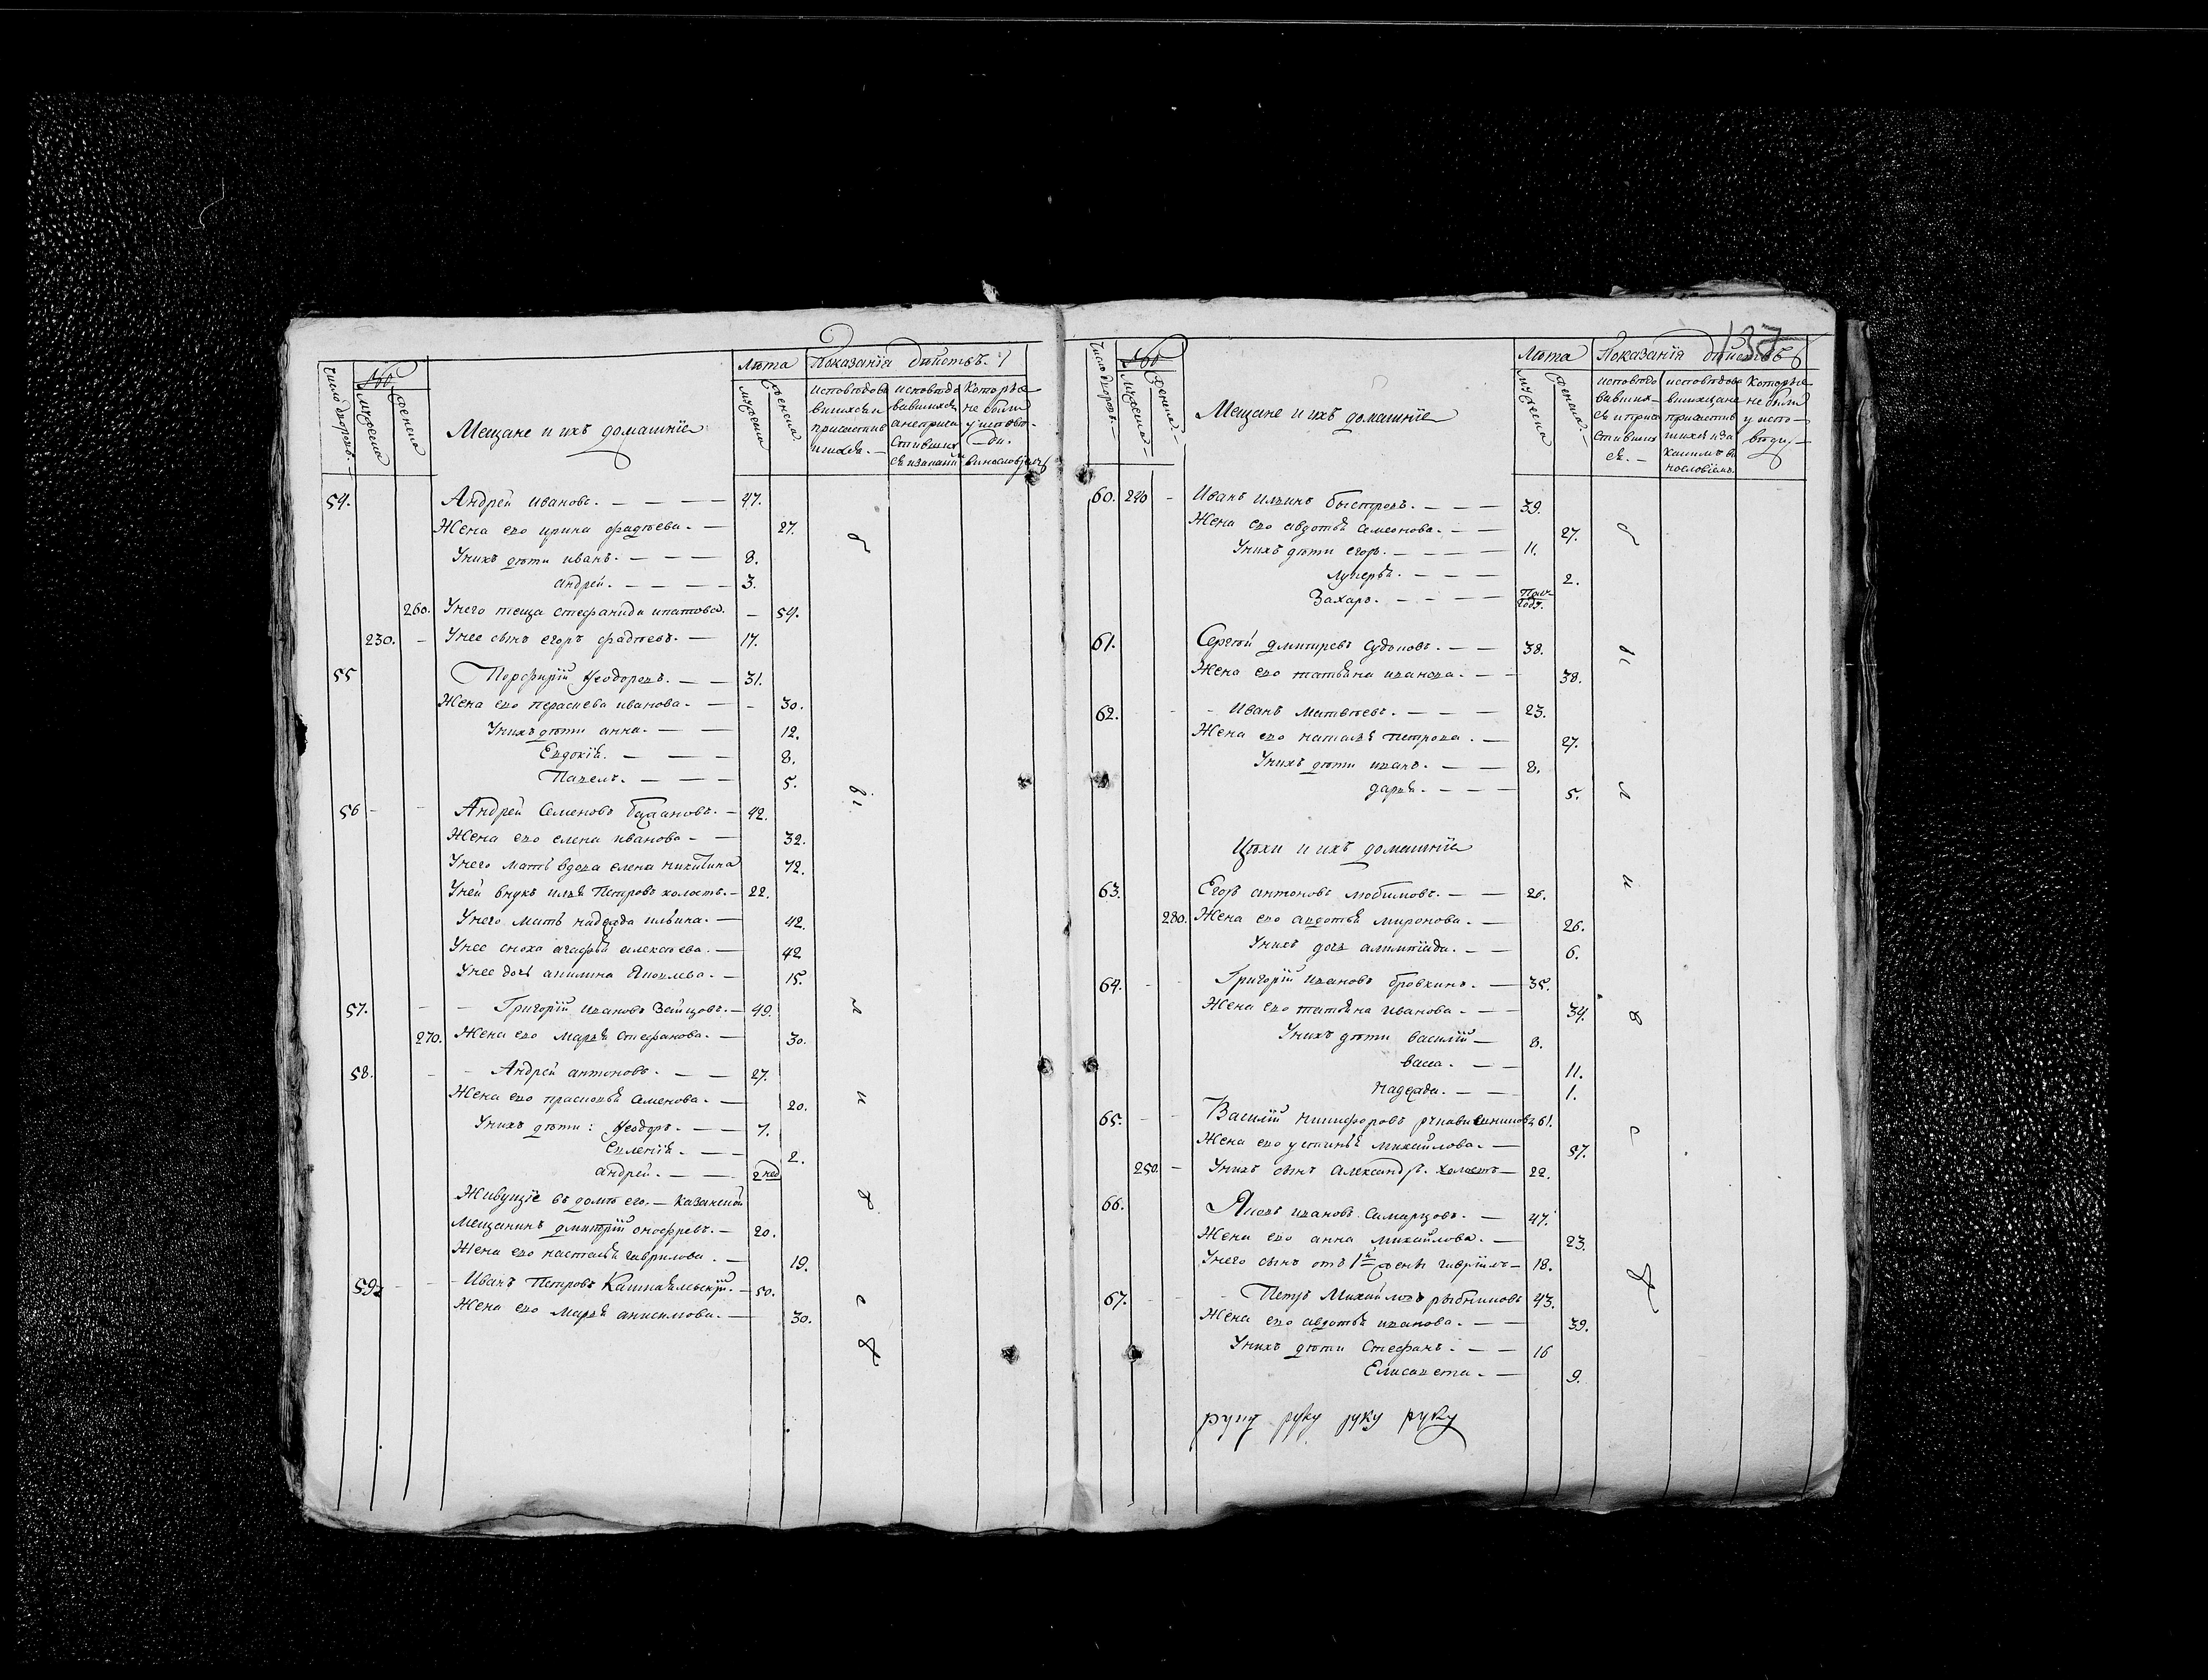 Число дворовъ.
№
мужеска
женска
Мещане и ихъ домашніе
Лѣта
мужеска
женска
Показанія дѣйствъ.
исповѣдовавшихся и причастившихся.
исповѣдовавшихся а не причастившихся
которые не были у исповѣди.
54. Андрей Ивановъ. 47.
Жена его ирина фадѣева. 27.
У нихъ дѣти иванъ. 8.
андрей. 3.
260. У него теща стефанида ипатова. 54.
230. У нее сынъ егоръ фадѣевъ. 17.
55 Порфирій Ѳеодоровъ. 31.
Жена его парасцева иванова. 30.
У нихъ дѣти анна. 12.
Евдокія. 8.
Павелъ. 5.
56 Андрей Семеновъ 42.
Жена его елена иванова 32.
У него мать вдова елена никитина 72.
У ней внукъ илья Петровъ холостъ. 22.
У него мать надежда ильина. 42.
У нее сноха агафья алексѣева. 42
У нее дочь акилина Яковлева. 15.
57. Григорій ивановъ Зайцовъ. 49.
270. Жена его марья Стефанова. 30.
58. Андрей антоновъ. 27.
Жена его прасковья Семенова. 20.
У нихъ дѣти: Ѳеодоръ. 7.
2.
андрей. 2 нед
Живущіе въ домѣ его. Казанской
Мещанинъ дмитрій онофревъ. 20.
Жена его настасья гаврилова. 19.
59 Иванъ Петровъ 50.
Жена его марья анисимова. 30.
137
Число дворовъ.
№
мужеска
женска
Мещане и ихъ домашніе
Лѣта
мужеска
женска
Показанія дѣйствъ
исповѣдовавшихся и причастившихся.
которые не были у исповѣди
60. 240 Иванъ ильинъ быстровъ. 39.
Жена его авдотья Семенова. 27.
У нихъ дѣти егоръ. 11.
лукерья. 2.
Захаръ. Пол года.
61. Сергѣй дмитревъ Судоковъ. 38.
Жена его татьяна иванова. 38.
62. Иванъ Матвѣевъ. 23.
Жена его наталья петрова. 27.
У нихъ дѣти иванъ. 8.
дарья. 5.
Цѣхи и ихъ домашніе
63. Егоръ антоновъ любимовъ. 26.
280. Жена его авдотья миронова. 26.
У нихъ дочь алимпіада. 6.
64. Григорій ивановъ бровкинъ. 35.
Жена его татьяна иванова. 34.
У нихъ дѣти василій 8.
васса. 11.
надежда. 1.
65. Василій никифоровъ рукавишниковъ 61.
Жена его устинья михайлова. 57.
250. У нихъ сынъ Александръ. холостъ 22.
66. Яковъ ивановъ Самарцовъ. 47.
Жена его анна михайлова. 23.
У него сынъ отъ 1й жены гавріилъ 18.
67. Петръ Михайловъ рыбниковъ 43.
Жена его авдотья иванова. 39.
У нихъ дѣти Стефанъ. 16
Елисавета. 9.
руку руку руку